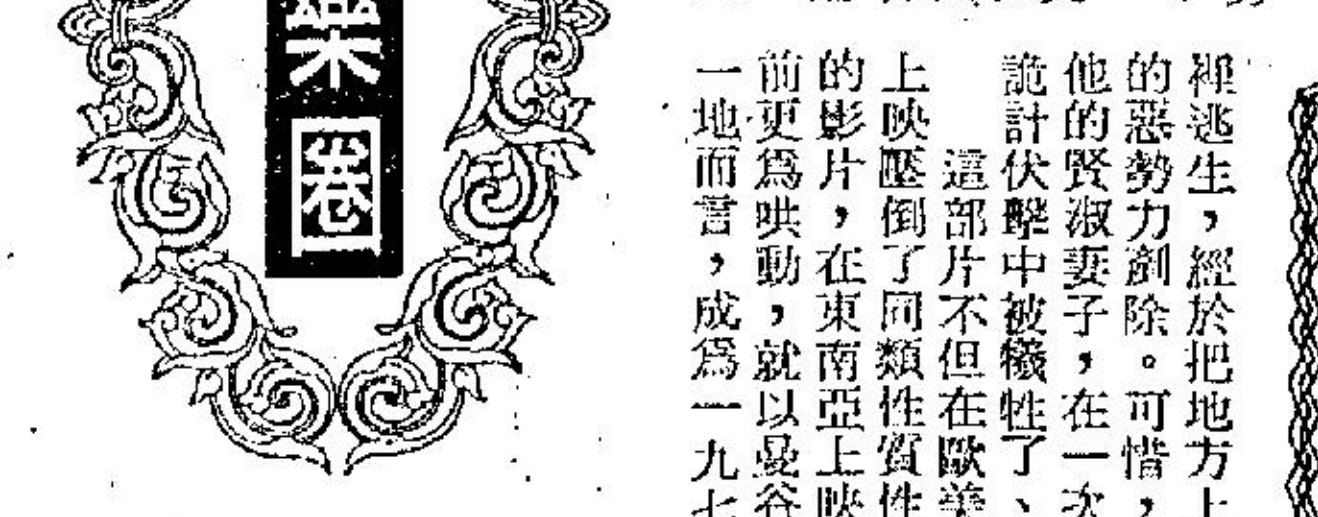 裡逃生，經於把地方上
的惡勢力剷除。可惜，
他的賢淑妻子，在一次
詭計伏擊中被犧牲了、
這部片不但在歐美
上映壓倒了同類性質性
的影片，在東南亞上映
前更爲哄動，就以曼谷
一地而言，成爲一九七
樂圈